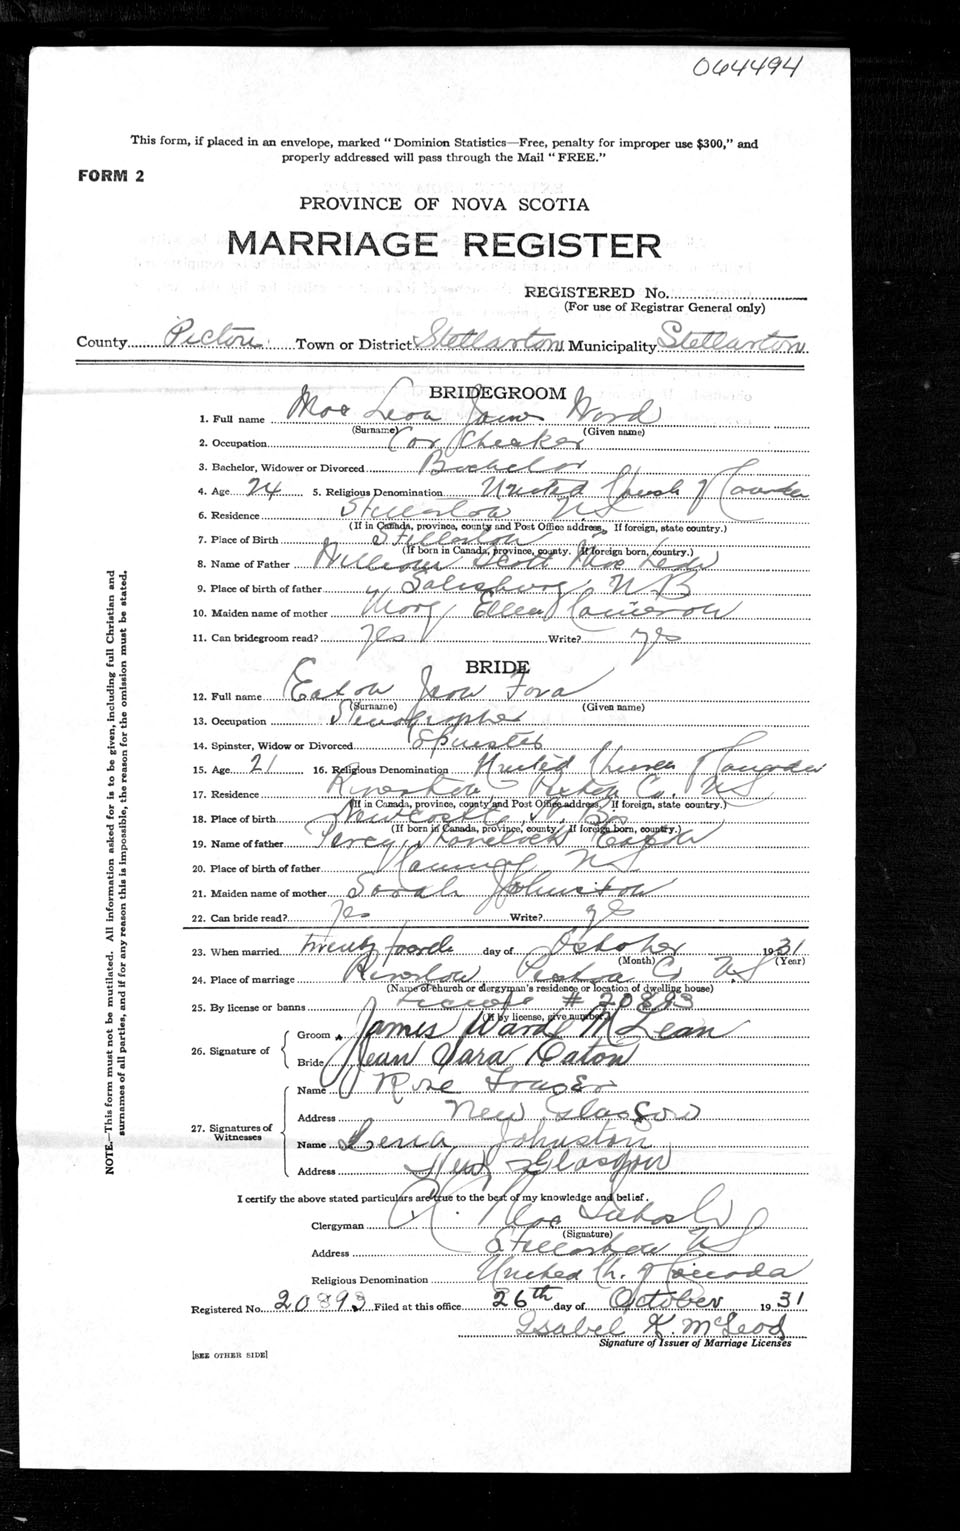 064494
This form, if placed in an envelope, marked "Dominion Statistics—Free, penalty for improper use $300," and
properly addressed will pass through the Mail "FREE."
FORM 2
PROVINCE OF NOVA SCOTIA
MARRIAGE REGISTER
REGISTERED No.
(For use of Registrar General only)
County Pictou Town or District Stellarton Municipality Stellarton
BRIDEGROOM
1. Full name Mac Lean James Ward
(Surname) (Given name)
2. Occupation Car Checker
3. Bachelor, Widower or Divorced Bachelor
4. Age 24 5. Religious Denomination United Church of Canada
6. Residence Stellarton N S
(If in Canada, province, county and Post Office address. If foreign, state country.)
7. Place of Birth Stellarton
(If born in Canada, province, county. If foreign born, country.)
8. Name of Father William Scott Mac Lean
9. Place of birth of father Salisbury N B
10. Maiden name of mother Mary Ellen Cameron
11. Can bridegroom read? yes Write? yes
BRIDE
12. Full name Eaton Jean
(Surname) (Given name)
13. Occupation Stenographer
14. Spinster, Widow or Divorced Spinster
15. Age 21 16. Religious Denomination United Church of Canada
17. Residence Riverton Pictou Co. N S
(If in Canada, province, county and Post Office address. If foreign, state country.)
18. Place of birth Newcastle N. B.
(If born in Canada, province, county. If foreign born, country.)
19. Name of father Percy Eaton
20. Place of birth of father N S
21. Maiden name of mother Sarah Johnston
22. Can bride read? yes Write? yes
23. When married twenty fourth day of October 1931
(Month) (Year)
24. Place of marriage Riverton Pictou Co N S
(Name of church or clergyman's residence or location of dwelling house)
25. By license or banns License # 20893
(If by license, give number)
26. Signature of
Groom James Ward McLean
Bride Jean Vara Eaton
27. Signatures of Witnesses
Name Rose Fraser
Address New Glasgow
Name Lena Johnston
Address New Glasgow
I certify the above stated particulars are true to the best of my knowledge and belief.
Clergyman
(Signature)
Address Stellarton N S
Religious Denomination United Ch. of Canada
Registered No. 20893 Filed at this office 26th day of October 1931
Isabel K. McLeod
Signature of Issuer of Marriage Licenses
[SEE OTHER SIDE]
NOTE.—This form must not be mutilated. All information asked for is to be given, including full Christian and
surnames of all parties, and if for any reason this is impossible, the reason for the omission must be stated.